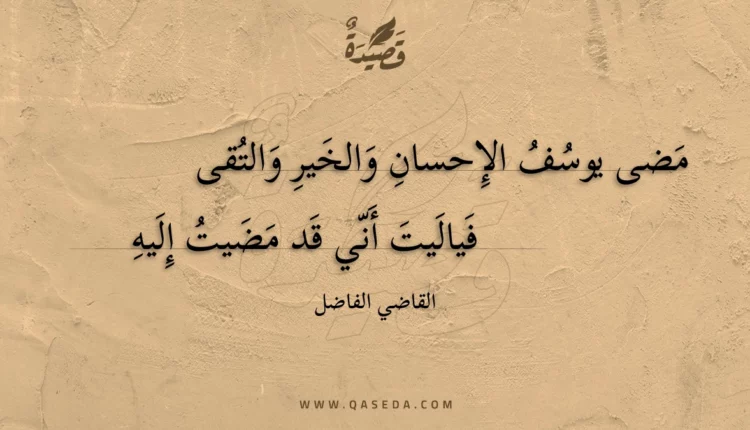 قَصِيدَةٌ
مَضى يوسُفُ الإِحسانِ وَالخَيرِ وَالتُقى
فَيالَيتَ أَنّي قَد مَضَيتُ إِلَيهِ
القاضي الفاضل
WWW.QASEDA.COM